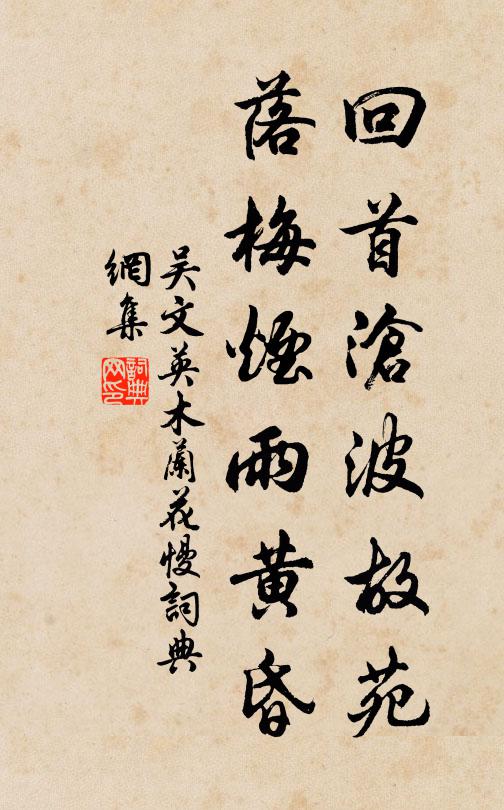 回首滄波故苑
落梅煙雨黄昏
吴文英木蘭花慢詞典
網集
詞典網印